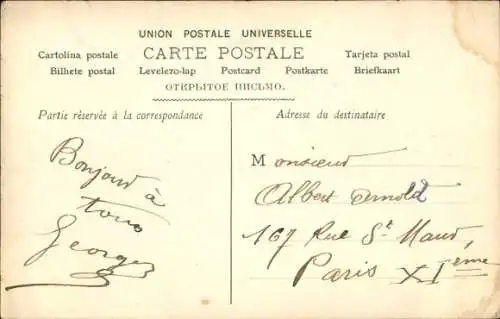 UNION POSTALE UNIVERSELLE
CARTE POSTALE
Cartolina postale
Tarjeta postal
Bilhete postal Levelezo-lap Postcard Postkarte Briefkaart
ОТКРЫТОЕ ПИСЬМО.
Partie réservée à la correspondance
Bonjour à
tous
Georges
Adresse du destinataire
Monsieur
Albert Arnold
167 Rue St Maur,
Paris XIeme